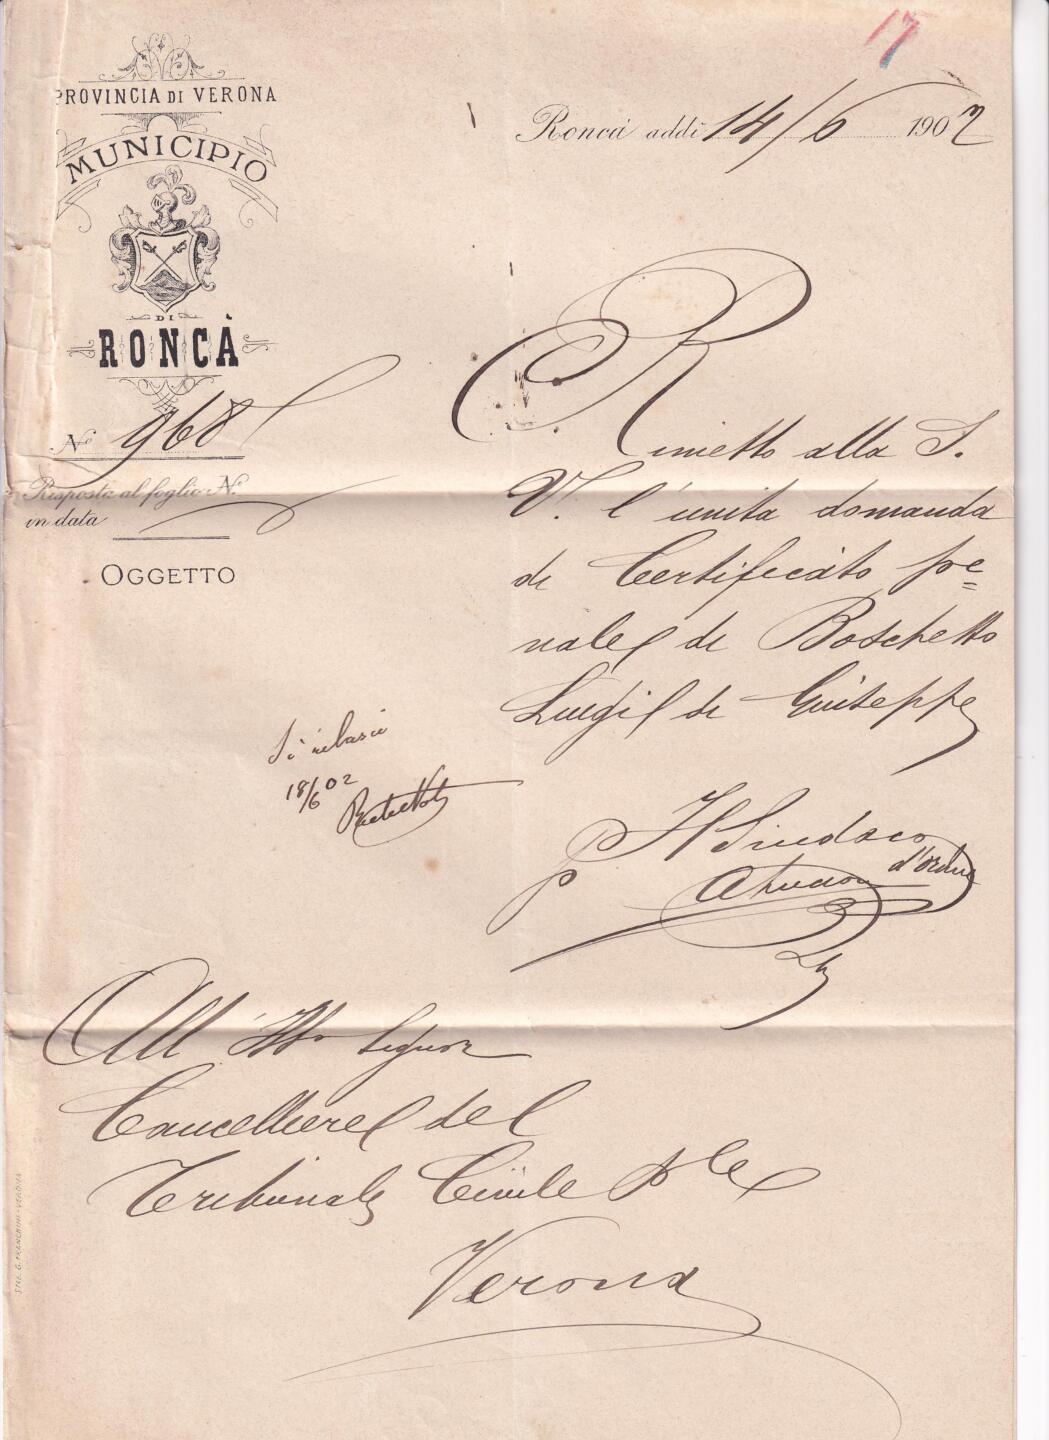 17
PROVINCIA DI VERONA
MUNICIPIO
DI
RONCÀ
Roncà addì 14/6 1902
Nº 968
Risposta al foglio Nº
in data
OGGETTO
Rimetto alla S.
V. l'unita domanda
di Certificato pe=
nale di Boschetto
Luigi di Giuseppe
Si rilascii
18/6 02
P Il Sindaco
d'ordine
All' Illo Signor
Cancelliere del
Tribunale Civile Ple
Verona
STAB. G. FRANCHINI-VERONA